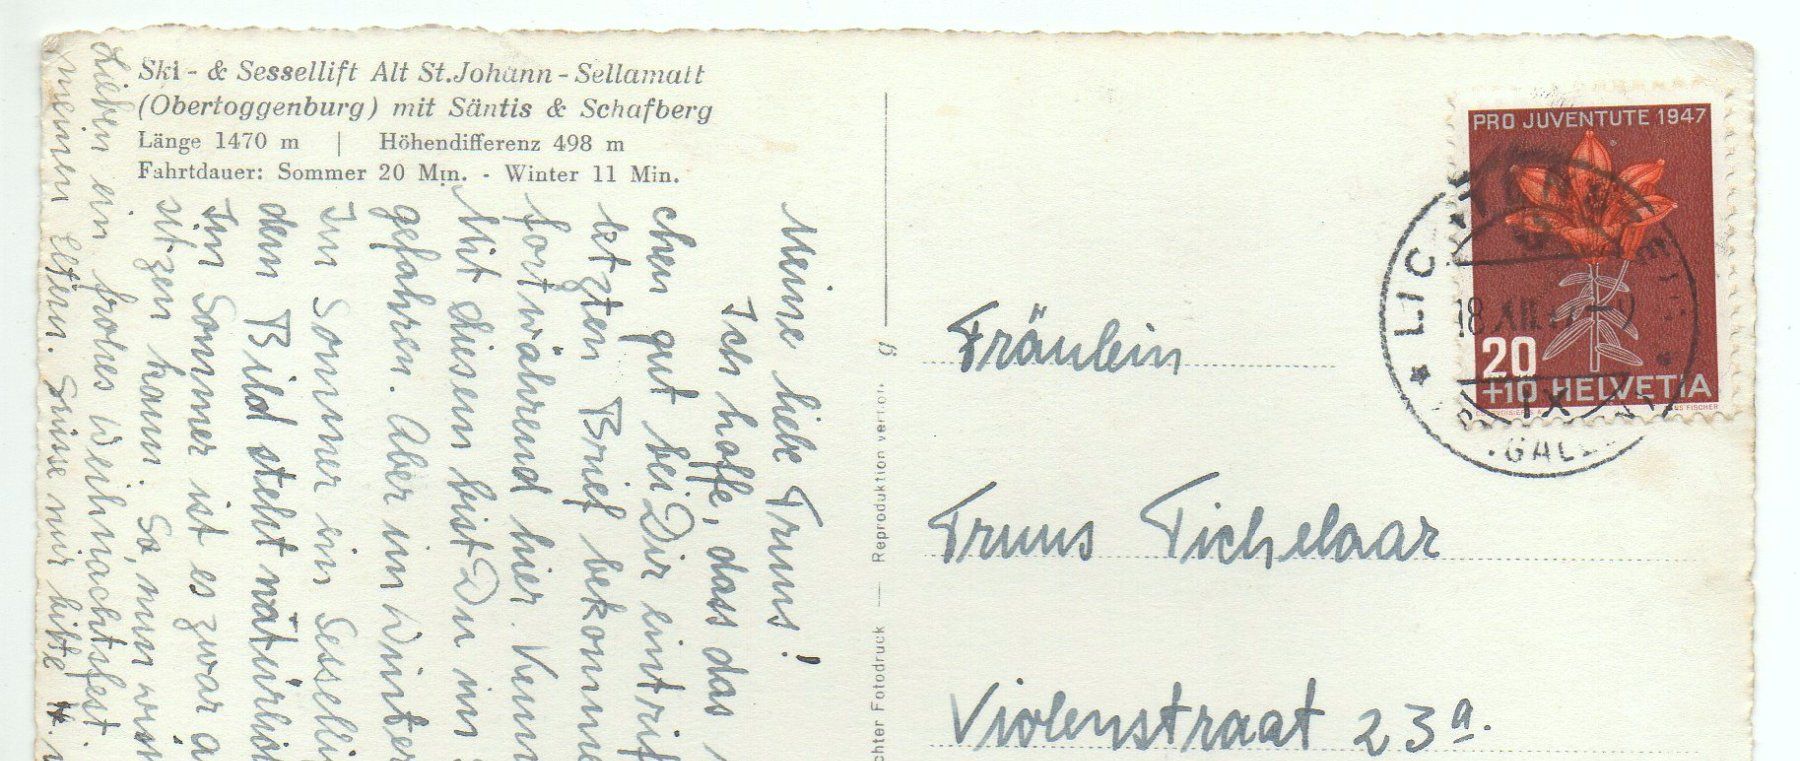 Ski- & Sessellift Alt St.Johann-Sellamatt
(Obertoggenburg) mit Säntis & Schafberg
Länge 1470 m | Höhendifferenz 498 m
Fahrtdauer: Sommer 20 Min. - Winter 11 Min.
Meine liebe Truus!
Ich hoffe, dass das
chen gut bei Dir eintrif
letzten Brief bekomme
fortwährend hier. Kenn
Mit diesem bist Du im S
gefahren. Aber im Winter
Im Sommer im Sesselli
dem Bild steht natürlich
Im Sommer ist es zwar a
sitzen kann. So, nun wün
Lieben ein frohes Weihnachtsfest
meinen Eltern. Grüsse mir bitte
chter Fotodruck — Reproduktion verbot.
g
Fräulein
Truus Tichelaar
Violenstraat 23a.
PRO JUVENTUTE 1947
20
+10 HELVETIA
18.XII.47
IX
GALL